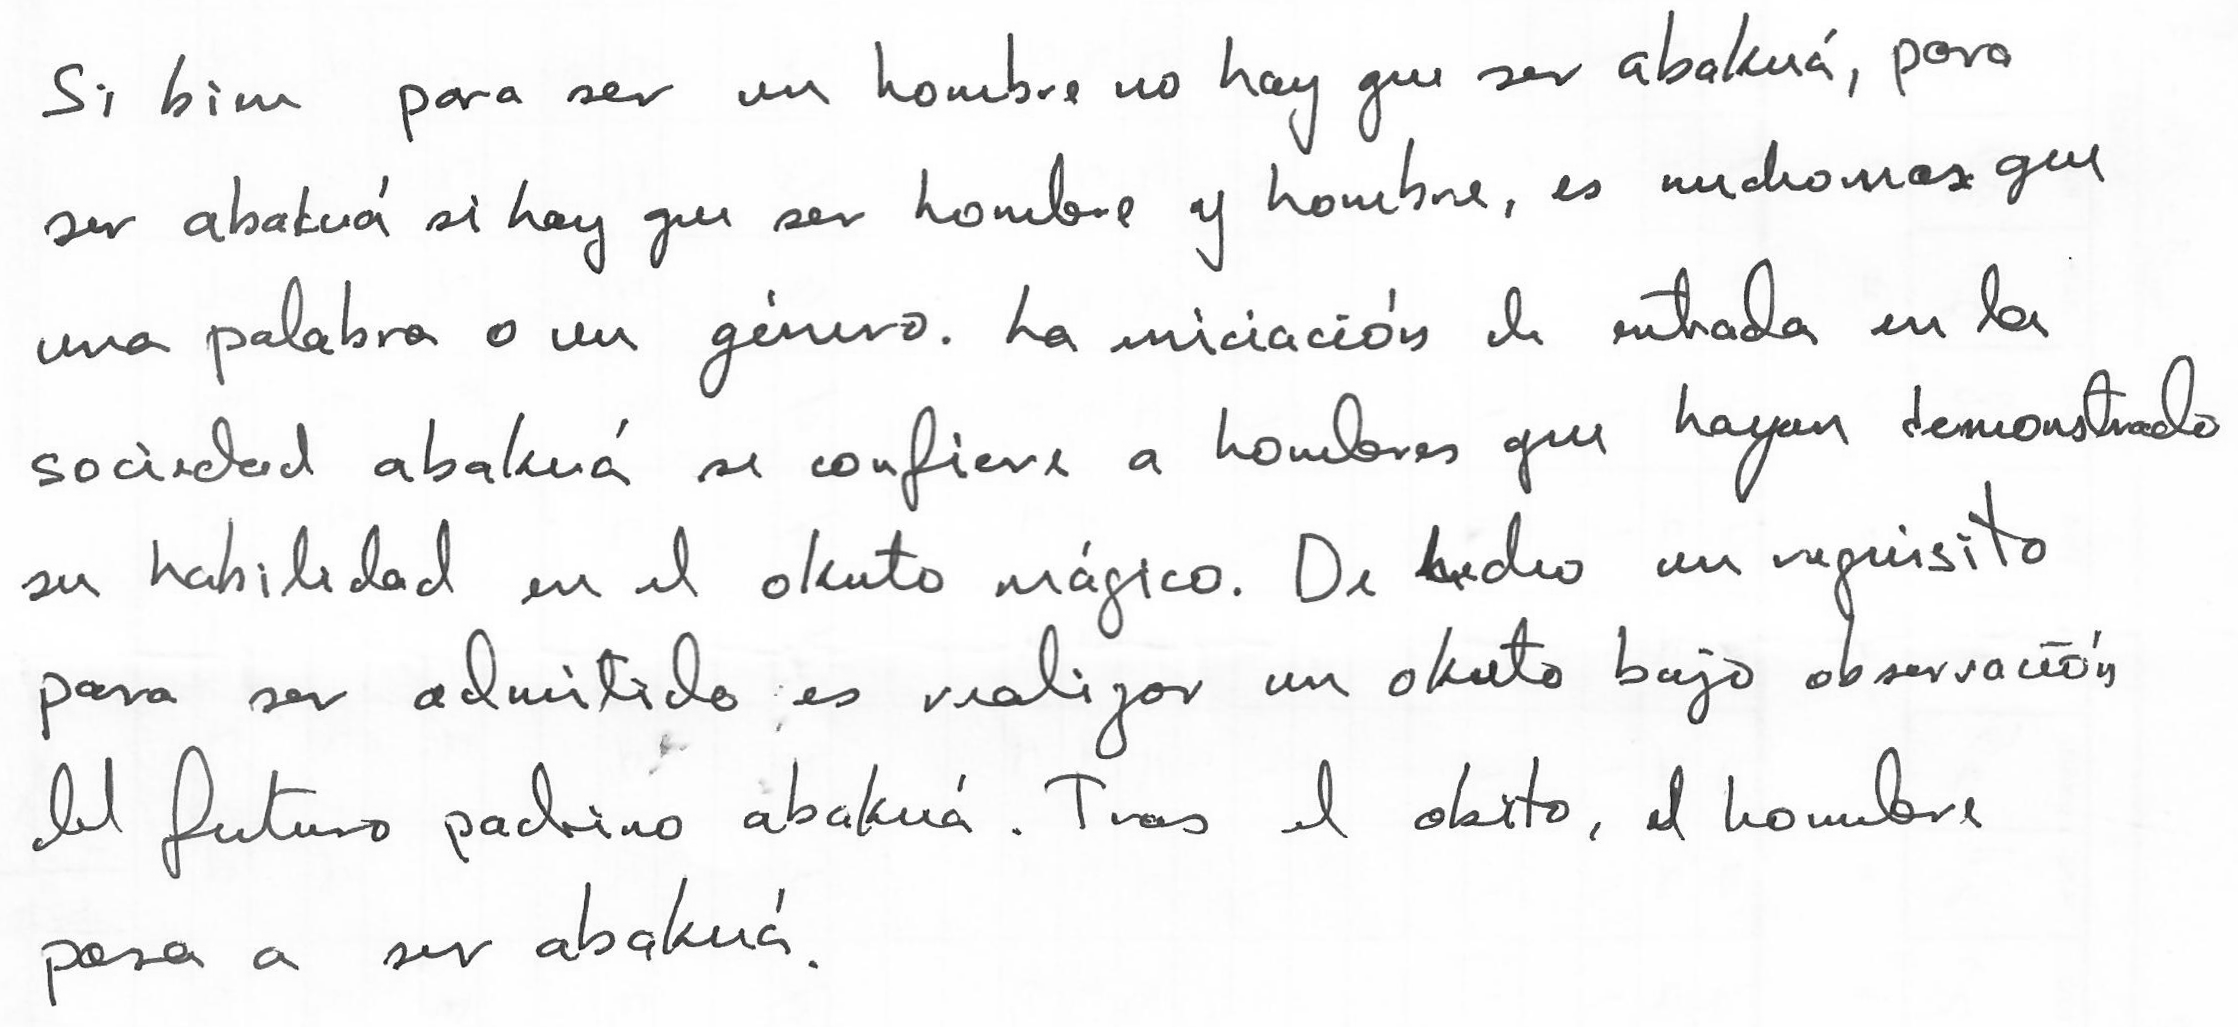 Si bien para ser un hombre no hay que ser abakuá, para
ser abakuá si hay que ser hombre y hombre, es mucho mas que
una palabra o un género. La iniciación de entrada en la
sociedad abakuá se confiere a hombres que hayan demonstrado
su habilidad en el okuto mágico. De hecho un requisito
para ser admitido es realizar un okuto bajo observación
del futuro padrino abakuá. Tras el obito, el hombre
pasa a ser abakuá.